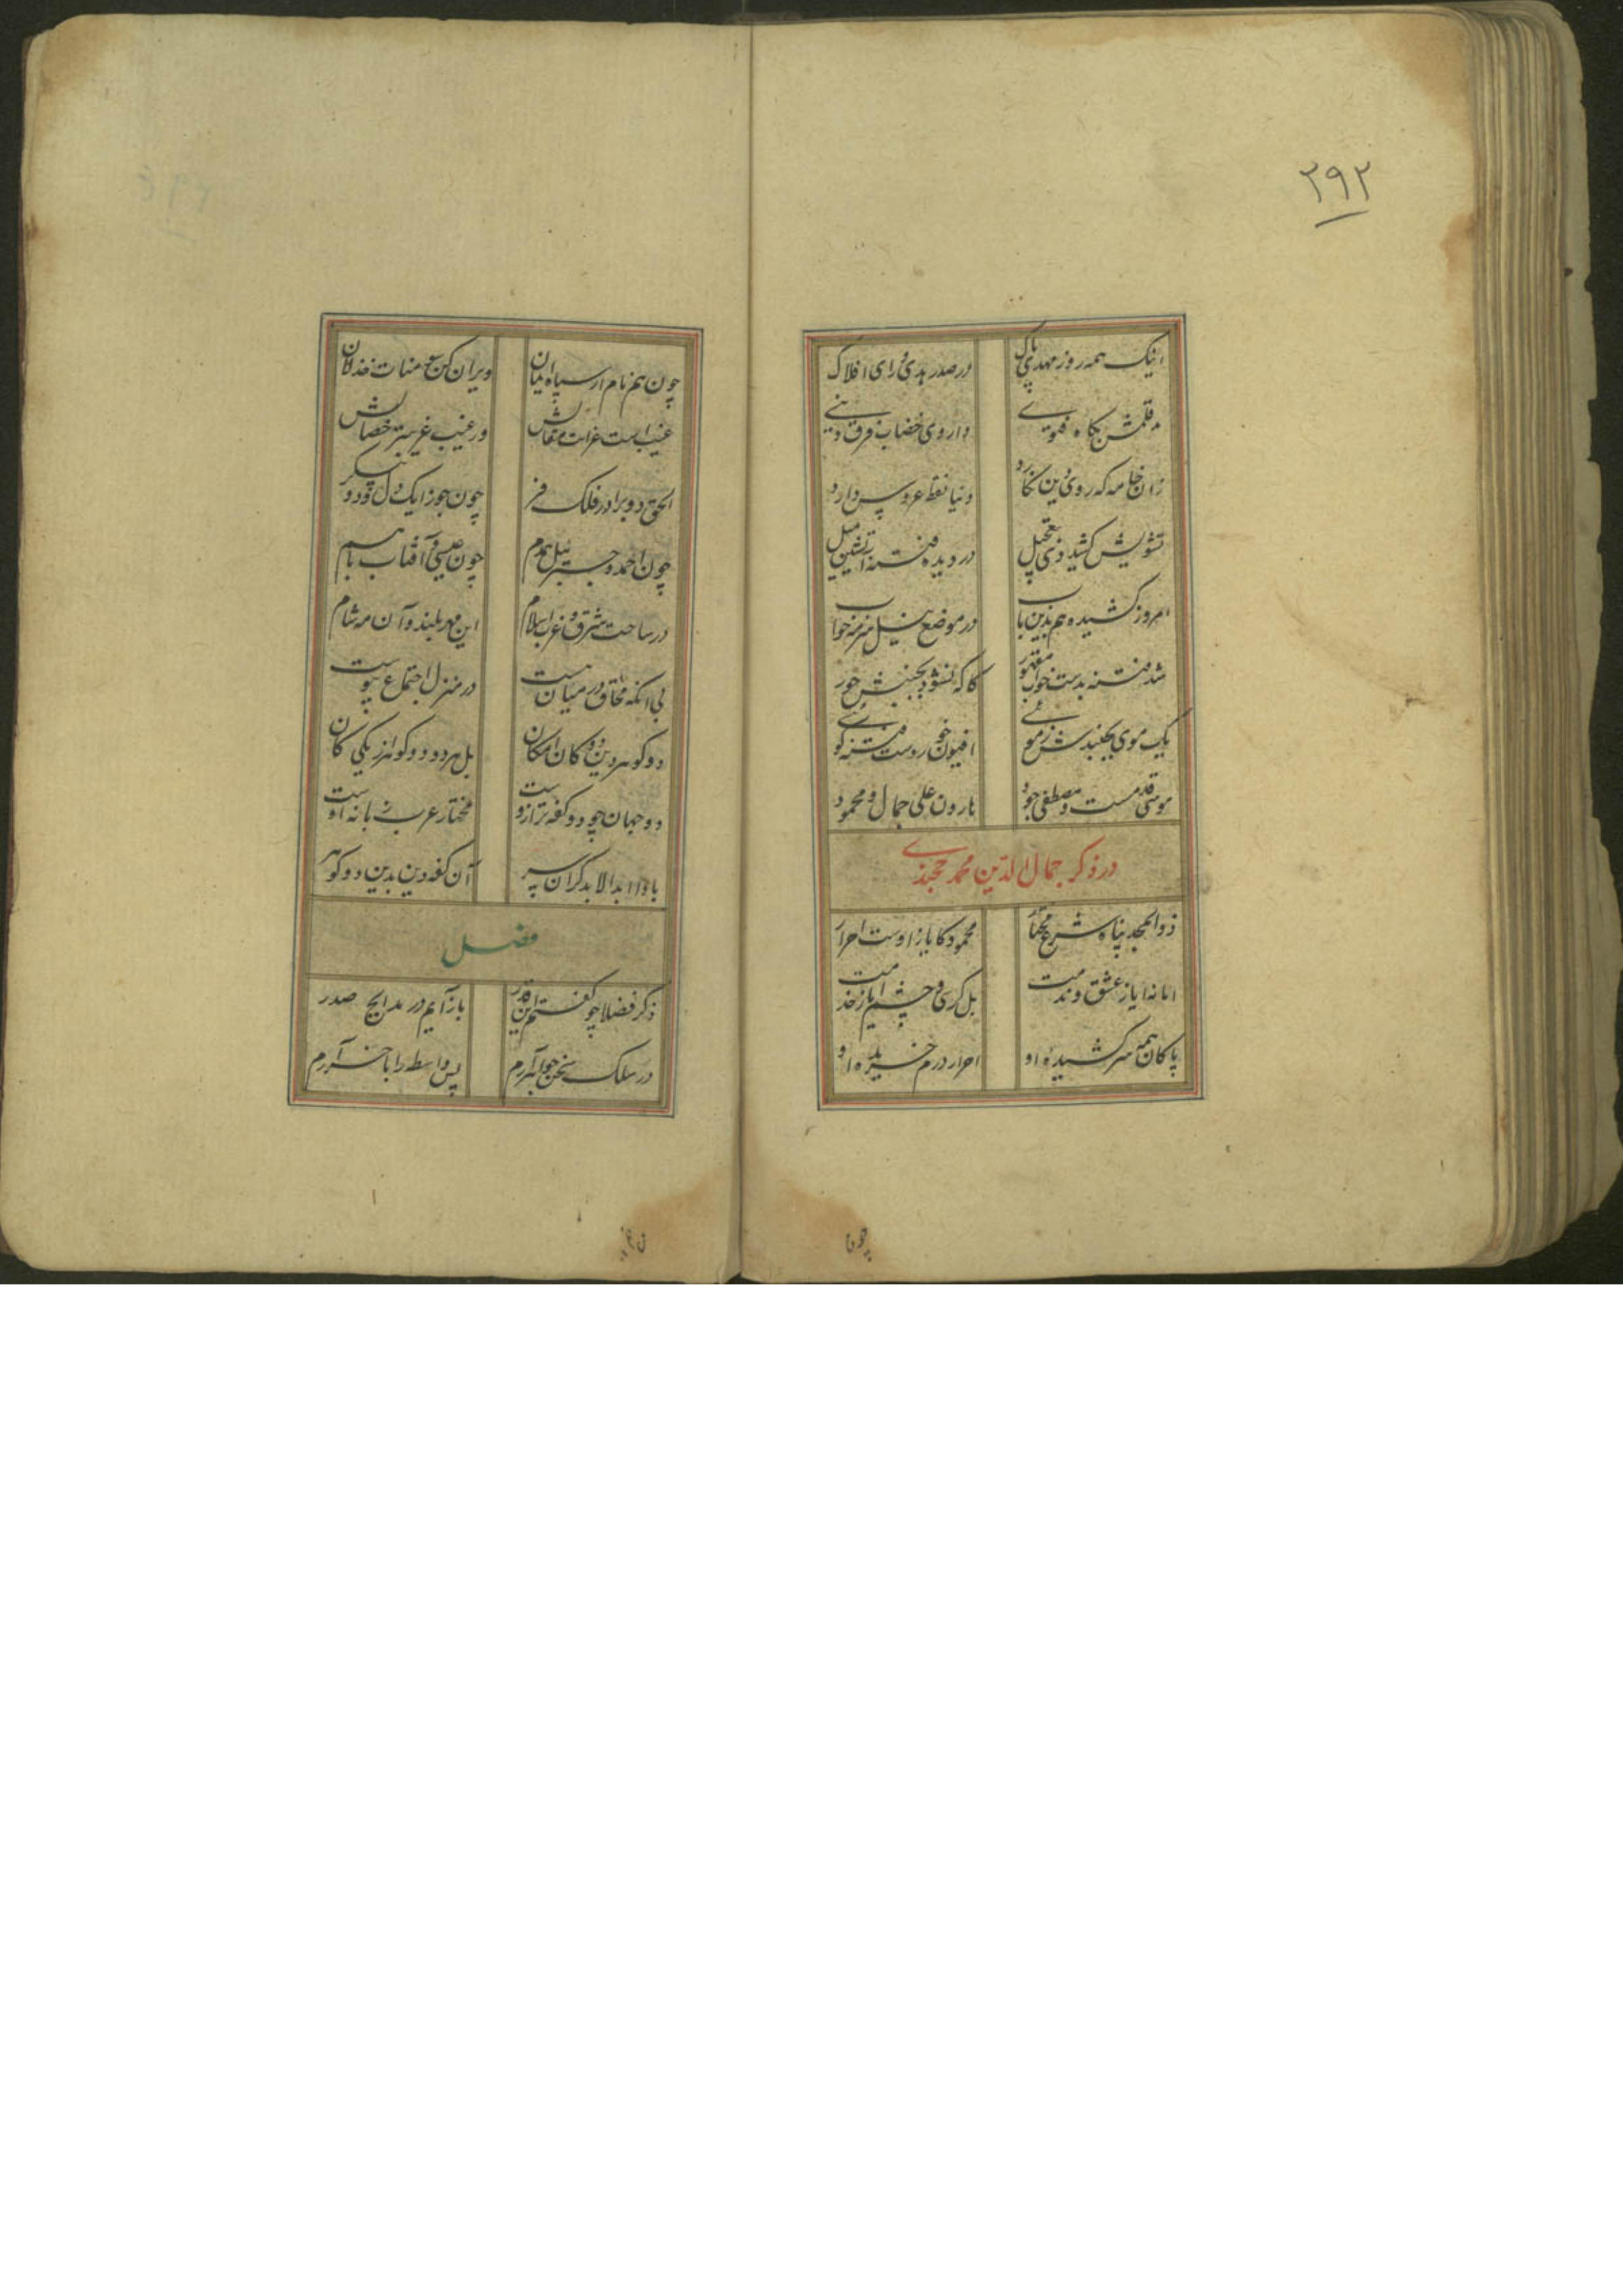 ۲۹۲
اینک همه روز مهدی پاک
در صدر هدی ورای افلاک
قلمش بگاه فتوی
داروی خضاب فرق دنیی
زان خامه که روی دین نگارد
دنیا نقط عروس دارد
تشویش کشید ذی تعجیل
در دیده فتنه آتشین میل
امروز کشیده هم بدین باب
در موضع نیل سرمه خواب
شد فتنه بدست خواب مقهور
کاکه نشود بجنبش حور
یک موی نجنبدش ز موئی
افیون خور اوست فتنه گوئی
موسی قدمست و مصطفی جود
هارون علی جمال و محمود
در ذکر جمال الدین محمد خجندی
ذو المجد پناه شرع مختار
محمود کایاز اوست احرار
امانه ایاز عشق و ندمت
بل کرسی و چشم ایاز خدمت
پاکان همه سر کشیده او
احرار درم خریده او
چون
چون هم نام از سپاه ایمان
ویران کن سومنات خذلان
غیب است عزات
ور غیب غریبتر خصالش
الحق دو برادر فلک فر
چون جوزا یک دل و دو پیکر
چون احمد و جبرئیل همدم
چون عیسی و آفتاب باهم
در ساحت شرق و غرب اسلام
این مهر بلند و آن مه شام
بی آنکه محاق در میان هست
در منزل اجتماع پیوست
دو گوهر دین ز دو کان امکان
بل هر دو دو گوهر از یکی کان
دو جهان چو دو کفه ترازوست
مختار عرب زبانه اوست
بادا ابدالابد گران سر
آن کفه دین بدین دو گوهر
فصل
ذکر فضلا چو گفتم این قدر
باز آیم در مدایح صدر
در سلک سخن جواهر آرم
پس واسطه را باخر آرم